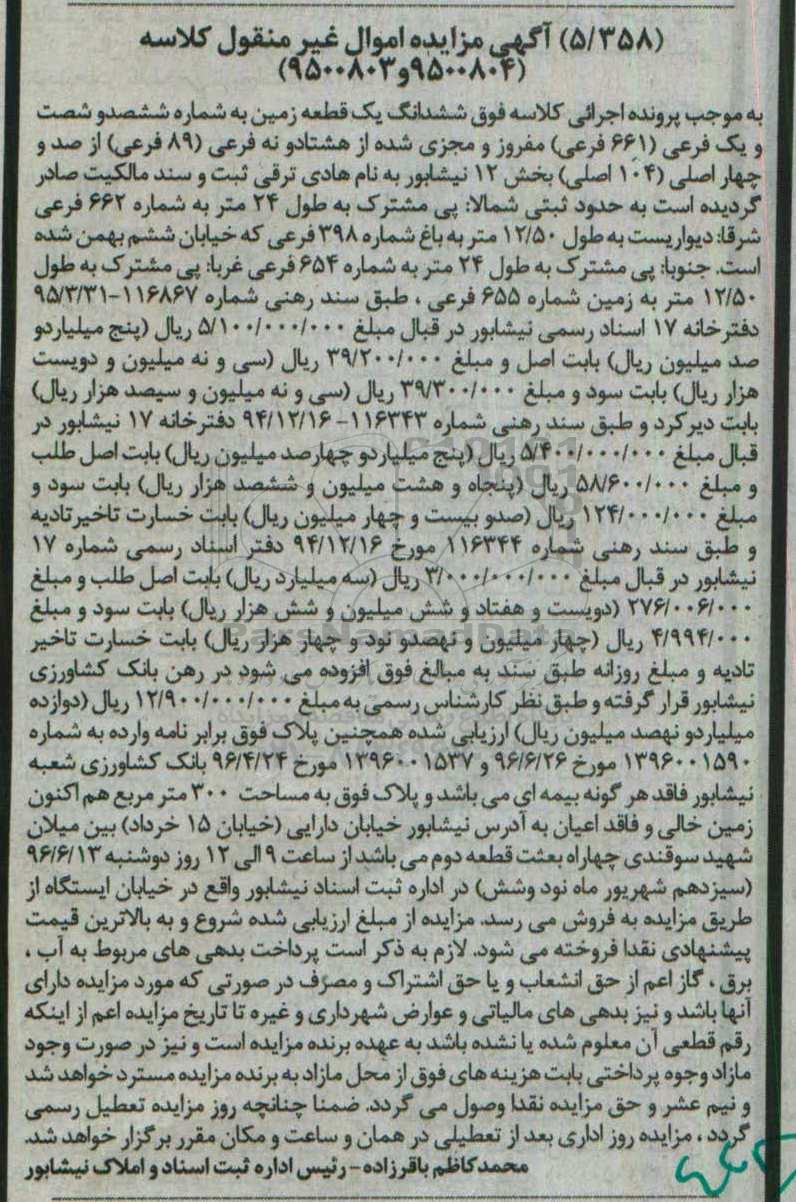 (۵/۳۵۸) آگهی مزایده اموال غیر منقول کلاسه
(۹۵۰۰۸۰۴و۹۵۰۰۸۰۳)
به موجب پرونده اجرائی کلاسه فوق ششدانگ یک قطعه زمین به شماره ششصدو شصت
و یک فرعی (۶۶۱ فرعی) مفروز و مجزی شده از هشتادو نه فرعی (۸۹ فرعی) از صد و
چهار اصلی (۱۰۴ اصلی) بخش ۱۲ نیشابور به نام هادی ترقی ثبت و سند مالکیت صادر
گردیده است به حدود ثبتی شمالا: پی مشترک به طول ۲۴ متر به شماره ۶۶۲ فرعی
شرقا: دیواریست به طول ۱۲/۵۰ متر به باغ شماره ۳۹۸ فرعی که خیابان ششم بهمن شده
است. جنوبا: پی مشترک به طول ۲۴ متر به شماره ۶۵۴ فرعی غربا: پی مشترک به طول
۱۲/۵۰ متر به زمین شماره ۶۵۵ فرعی ، طبق سند رهنی شماره ۱۱۶۸۶۷-۹۵/۳/۳۱
دفترخانه ۱۷ اسناد رسمی نیشابور در قبال مبلغ ۵/۱۰۰/۰۰۰/۰۰۰ ریال (پنج میلیاردو
صد میلیون ریال) بابت اصل و مبلغ ۳۹/۲۰۰/۰۰۰ ریال (سی و نه میلیون و دویست
هزار ریال) بابت سود و مبلغ ۳۹/۳۰۰/۰۰۰ ریال (سی و نه میلیون و سیصد هزار ریال)
بابت دیرکرد و طبق سند رهنی شماره ۱۱۶۳۴۳- ۹۴/۱۲/۱۶ دفترخانه ۱۷ نیشابور در
قبال مبلغ ۵/۴۰۰/۰۰۰/۰۰۰ ریال (پنج میلیاردو چهارصد میلیون ریال) بابت اصل طلب
و مبلغ ۵۸/۶۰۰/۰۰۰ ریال (پنجاه و هشت میلیون و ششصد هزار ریال) بابت سود و
مبلغ ۱۲۴/۰۰۰/۰۰۰ ریال (صدو بیست و چهار میلیون ریال) بابت خسارت تاخیرتادیه
و طبق سند رهنی شماره ۱۱۶۳۴۴ مورخ ۹۴/۱۲/۱۶ دفتر اسناد رسمی شماره ۱۷
نیشابور در قبال مبلغ ۳/۰۰۰/۰۰۰/۰۰۰ ریال (سه میلیارد ریال) بابت اصل طلب و مبلغ
۲۷۶/۰۰۶/۰۰۰ (دویست و هفتاد و شش میلیون و شش هزار ریال) بابت سود و مبلغ
۴/۹۹۴/۰۰۰ ریال (چهار میلیون و نهصدو نود و چهار هزار ریال) بابت خسارت تاخیر
تادیه و مبلغ روزانه طبق سند به مبالغ فوق افزوده می شود در رهن بانک کشاورزی
نیشابور قرار گرفته و طبق نظر کارشناس رسمی به مبلغ ۱۲/۹۰۰/۰۰۰/۰۰۰ ریال (دوازده
میلیاردو نهصد میلیون ریال) ارزیابی شده همچنین پلاک فوق برابر نامه وارده به شماره
۱۳۹۶۰۰۱۵۹۰ مورخ ۹۶/۶/۲۶ و ۱۳۹۶۰۰۱۵۳۷ مورخ ۹۶/۴/۲۴ بانک کشاورزی شعبه
نیشابور فاقد هر گونه بیمه ای می باشد و پلاک فوق به مساحت ۳۰۰ متر مربع هم اکنون
زمین خالی و فاقد اعیان به آدرس نیشابور خیابان دارایی (خیابان ۱۵ خرداد) بین میلان
شهید سوقندی چهاراه بعثت قطعه دوم می باشد از ساعت ۹ الی ۱۲ روز دوشنبه ۹۶/۶/۱۳
(سیزدهم شهریور ماه نود وشش) در اداره ثبت اسناد نیشابور واقع در خیابان ایستگاه از
طریق مزایده به فروش می رسد. مزایده از مبلغ ارزیابی شده شروع و به بالاترین قیمت
پیشنهادی نقدا فروخته می شود. لازم به ذکر است پرداخت بدهی های مربوط به آب ،
برق ، گاز اعم از حق انشعاب و یا حق اشتراک و مصرف در صورتی که مورد مزایده دارای
آنها باشد و نیز بدهی های مالیاتی و عوارض شهرداری و غیره تا تاریخ مزایده اعم از اینکه
رقم قطعی آن معلوم شده یا نشده باشد به عهده برنده مزایده است و نیز در صورت وجود
مازاد وجوه پرداختی بابت هزینه های فوق از محل مازاد به برنده مزایده مسترد خواهد شد
و نیم عشر و حق مزایده نقدا وصول می گردد. ضمنا چنانچه روز مزایده تعطیل رسمی
گردد ، مزایده روز اداری بعد از تعطیلی در همان و ساعت و مکان مقرر برگزار خواهد شد.
محمدکاظم باقرزاده - رئیس اداره ثبت اسناد و املاک نیشابور